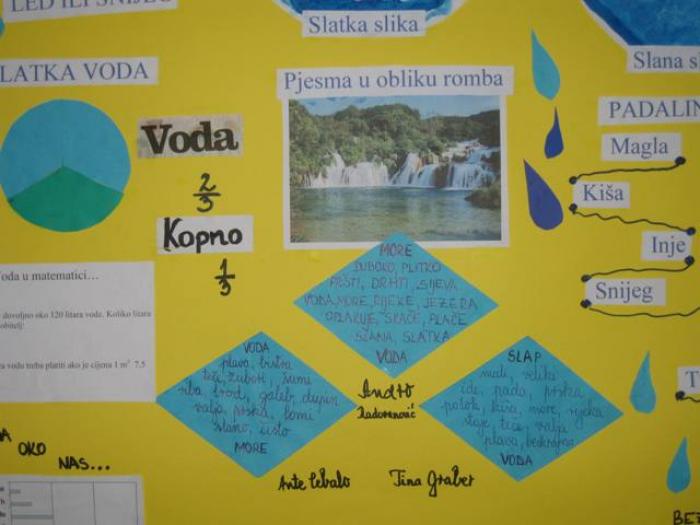 LED ILI SNIJEG
Slatka slika
LATKA VODA
Pjesma u obliku romba
Voda
2/3
Kopno
1/3
PADALIN
Magla
Kiša
Inje
Snijeg
oda u matematici...
dovoljno oko 120 litara vode. Koliko litara
obitelj:
vodu treba platiti ako je cijena 1 m³ 7.5
MORE
DUBOKO, PLITKO
PRŠTI, DRHTI, SIJEVA
VODA, MORE, RIJEKE, JEZERA
SKAČE, PLAČE
SLANA, SLATKA
VODA
VODA
plava, bistra
teče, žubori, šumi
riba, brod, galeb, dupin
valja, prska, lomi
slano, čisto
MORE
SLAP
mali, veliki
ide, pada, prska
potok, kiša, more, rijeka
stoji, teče, valja
plava, beskrajna
VODA
Andro
Radovanović
Ante Cebalo
Tina Graber
OKO
NAS...